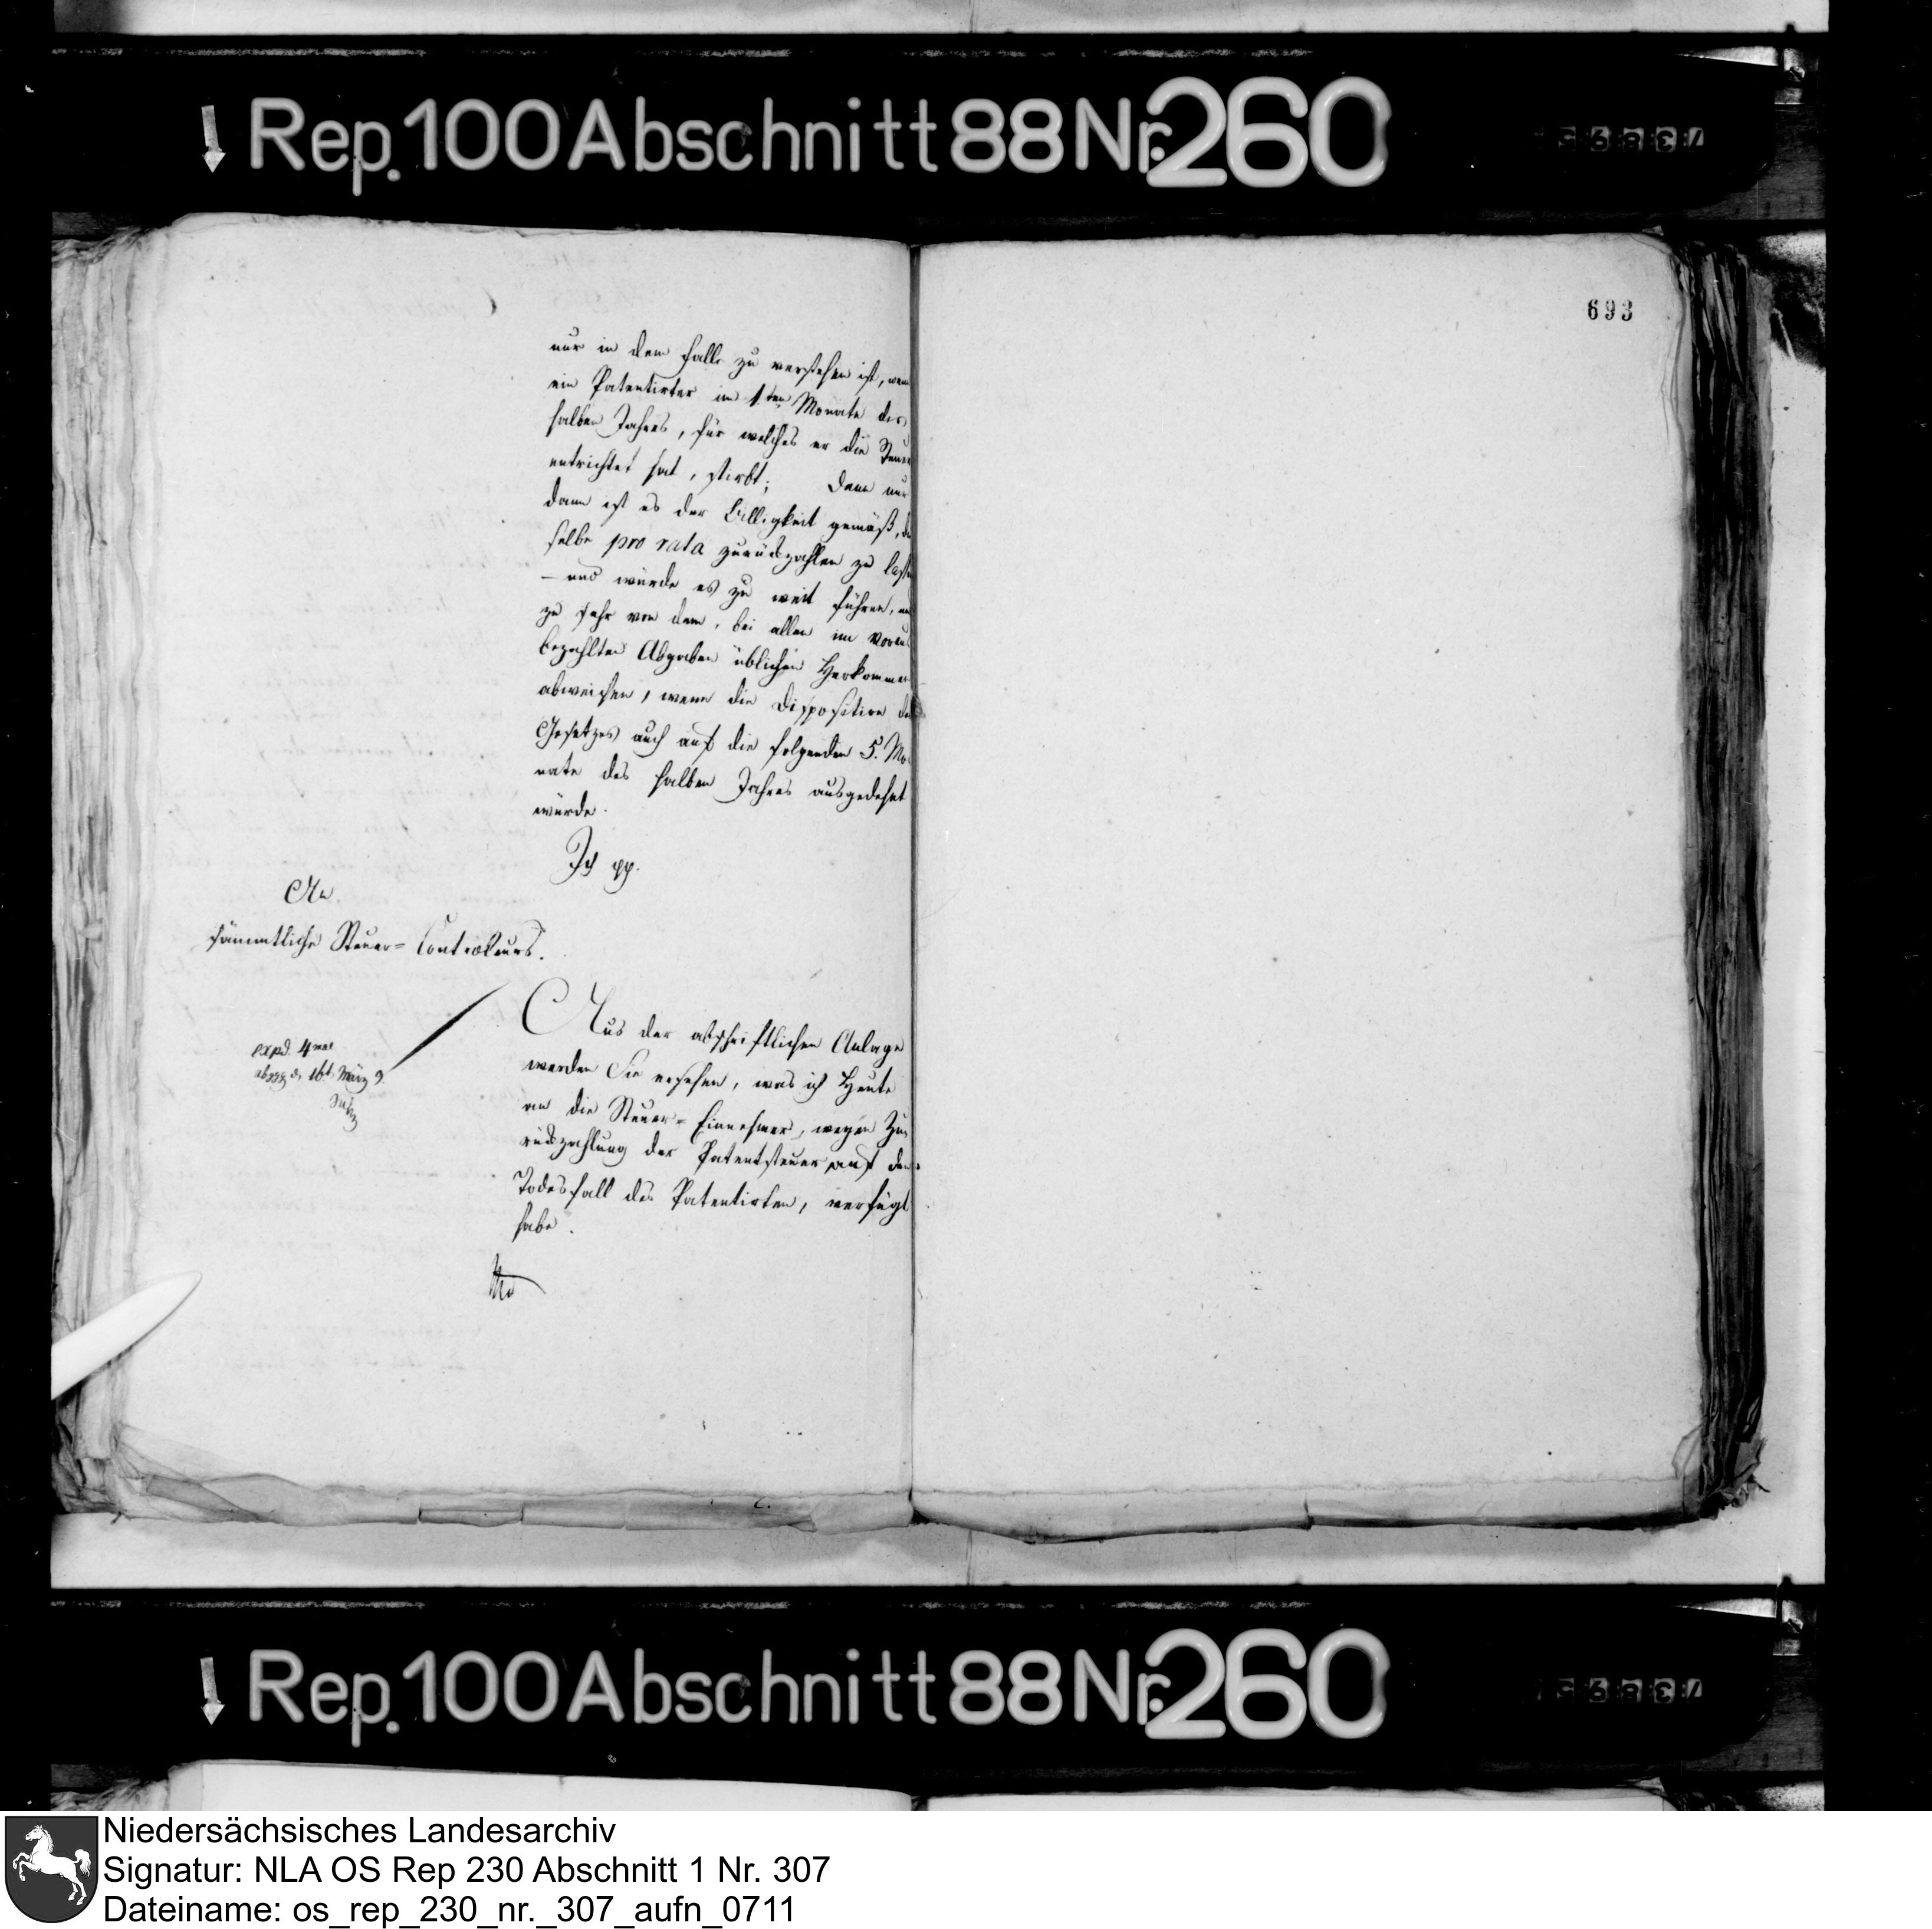 Rep. 100 Abschnitt 88 Nr. 260
73895
693
nur in dem Falle zu verstehen ist, wenn
ein Patentirter im 1ten Monate des
halben Jahres, für welches er die Steuer
entrichtet hat, stirbt; denn nur
dann ist es der Billigkeit gemäß, die
selbe pro rata zurückzahlen zu lassen
– und würde es zu weit führen, und
zu sehr von dem, bei allen im Voraus
bezahlten Abgaben üblichen Herkommen
abweichen, wenn die Disposition des
Gesetzes auch auf die folgenden 5. Mo-
nate des halben Jahres ausgedehnt
würde.
Ich pp.
An
sämmtliche Steuer-Controleurs.
Aus der abschriftlichen Anlage
werden Sie ersehen, was ich Heute
an die Steuer-Einnehmer, wegen Zu-
rückzahlung der Patentsteuer auf den
Todesfall des Patentirten, verfügt
habe.
expd. 4mal
März
Rep. 100 Abschnitt 88 Nr. 260
73895
Niedersächsisches Landesarchiv
Signatur: NLA OS Rep 230 Abschnitt 1 Nr. 307
Dateiname: os_rep_230_nr._307_aufn_0711